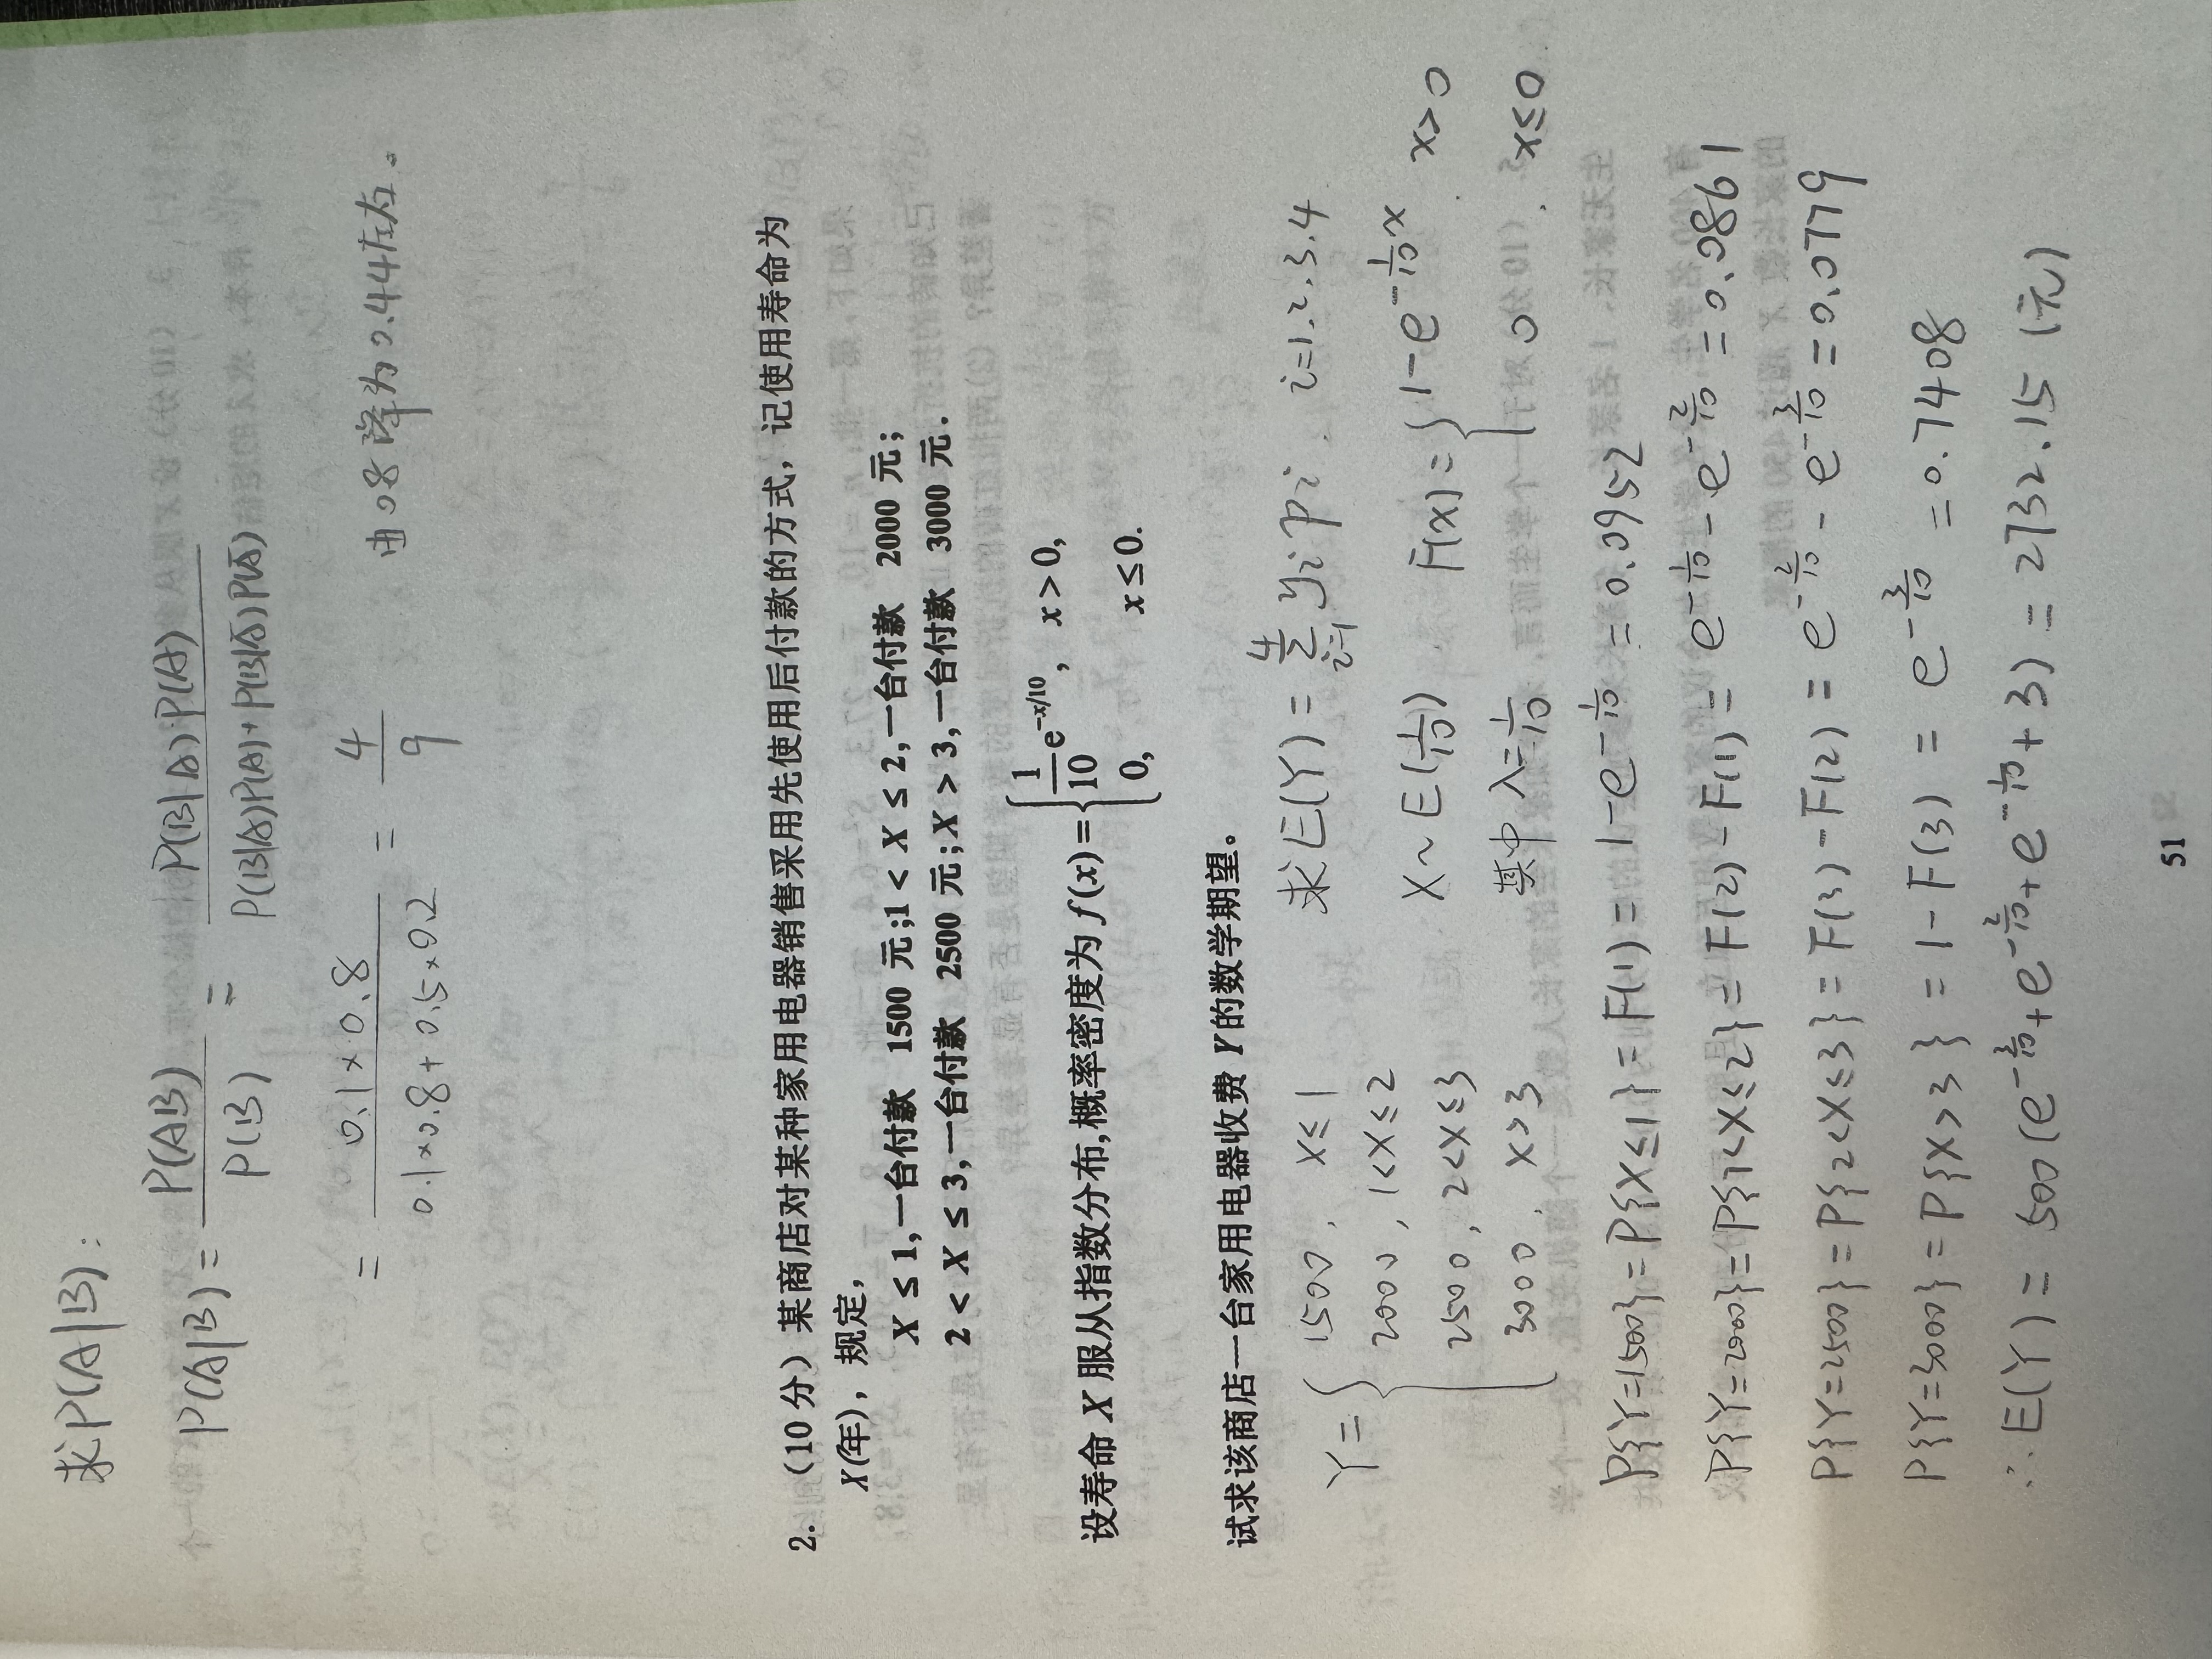 求P(A|B):
P(A|B) = P(AB)/P(B) = P(B|A)·P(A)/(P(B|A)P(A)+P(B|Ā)P(Ā))
= 0.1×0.8/(0.1×0.8+0.5×0.2) = 4/9 由0.8降为0.44左右。
2. (10分) 某商店对某种家用电器销售采用先使用后付款的方式，记使用寿命为
X(年)，规定，
X ≤ 1,一台付款 1500 元;1 < X ≤ 2,一台付款 2000 元;
2 < X ≤ 3,一台付款 2500 元;X > 3,一台付款 3000 元.
设寿命 X 服从指数分布,概率密度为 f(x) = { 1/10 e^{-x/10}, x > 0,
0, x ≤ 0.
试求该商店一台家用电器收费 Y 的数学期望。
Y = { 1500, X≤1 求E(Y) = Σ_{i=1}^{4} yi pi. i=1.2.3.4
2000, 1<X≤2
2500, 2<X≤3 X~E(1/10). F(x) = { 1-e^{-1/10 x}. x>0
3000, X>3 其中 λ=1/10 0. x≤0
P{Y=1500} = P{X≤1} = F(1) = 1-e^{-1/10} = 0.0952
P{Y=2000} = P{1<X≤2} = F(2)-F(1) = e^{-1/10} - e^{-2/10} = 0.0861
P{Y=2500} = P{2<X≤3} = F(3)-F(2) = e^{-2/10} - e^{-3/10} = 0.0779
P{Y=3000} = P{X>3} = 1-F(3) = e^{-3/10} = 0.7408
∴E(Y) = 500(e^{-3/10}+e^{-2/10}+e^{-1/10}+3) = 2732.15 (元)
51